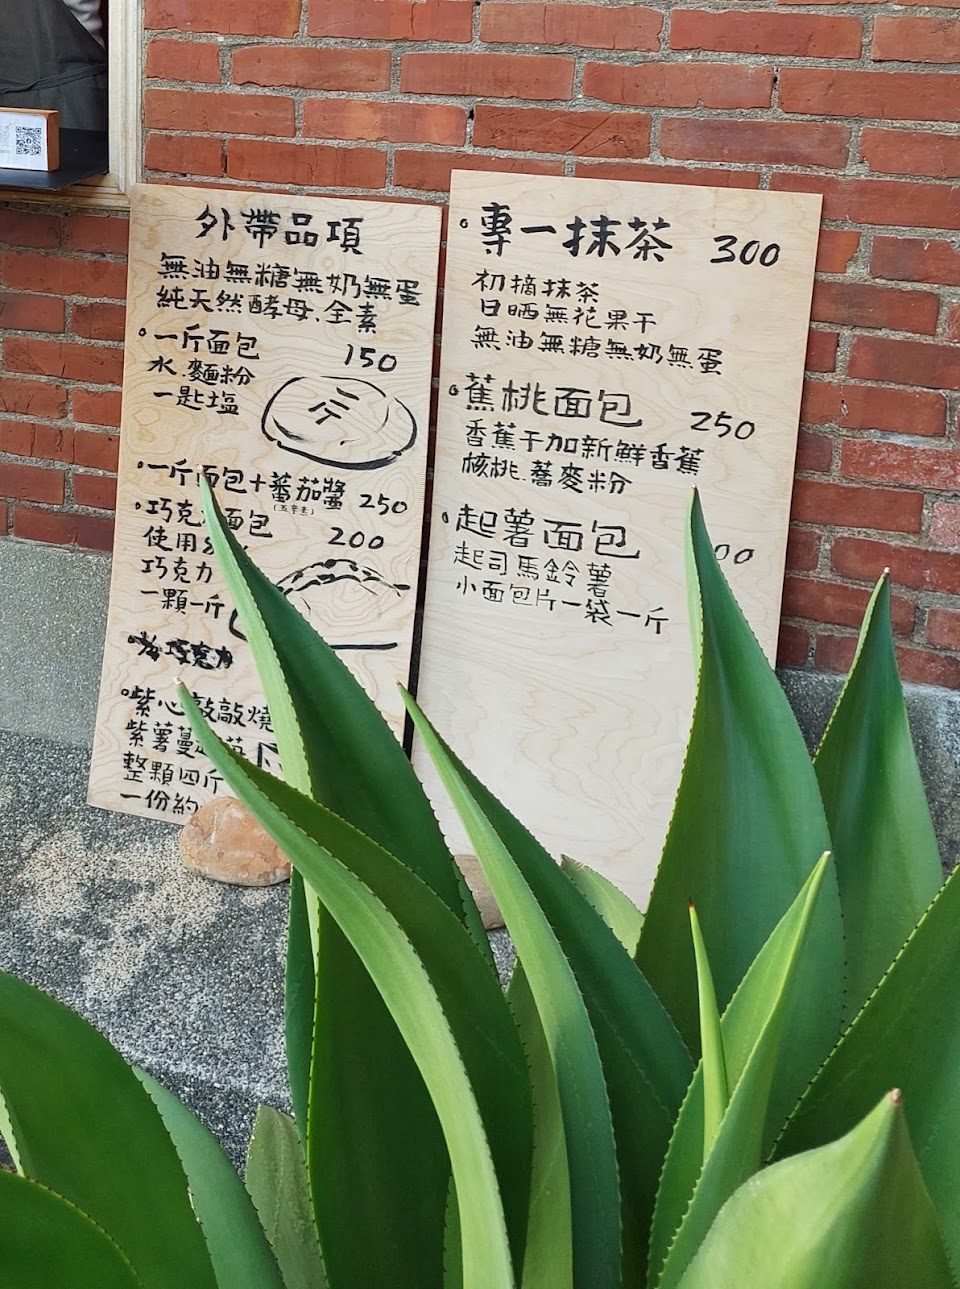 外帶品項
無油無糖無奶無蛋
純天然酵母.全素
一斤面包 150
水.麵粉
一匙塩
一斤
一斤面包+蕃茄醬 250
(五辛素)
巧克力面包 200
使用8
巧克力
一顆一斤
巧克力
紫心敲敲燒
紫薯蔓越莓
整顆四斤
一份約
專一抹茶 300
初摘抹茶
日晒無花果干
無油無糖無奶無蛋
蕉桃面包 250
香蕉干加新鮮香蕉
核桃.蕎麥粉
起薯面包 00
起司馬鈴薯
小面包片一袋一斤